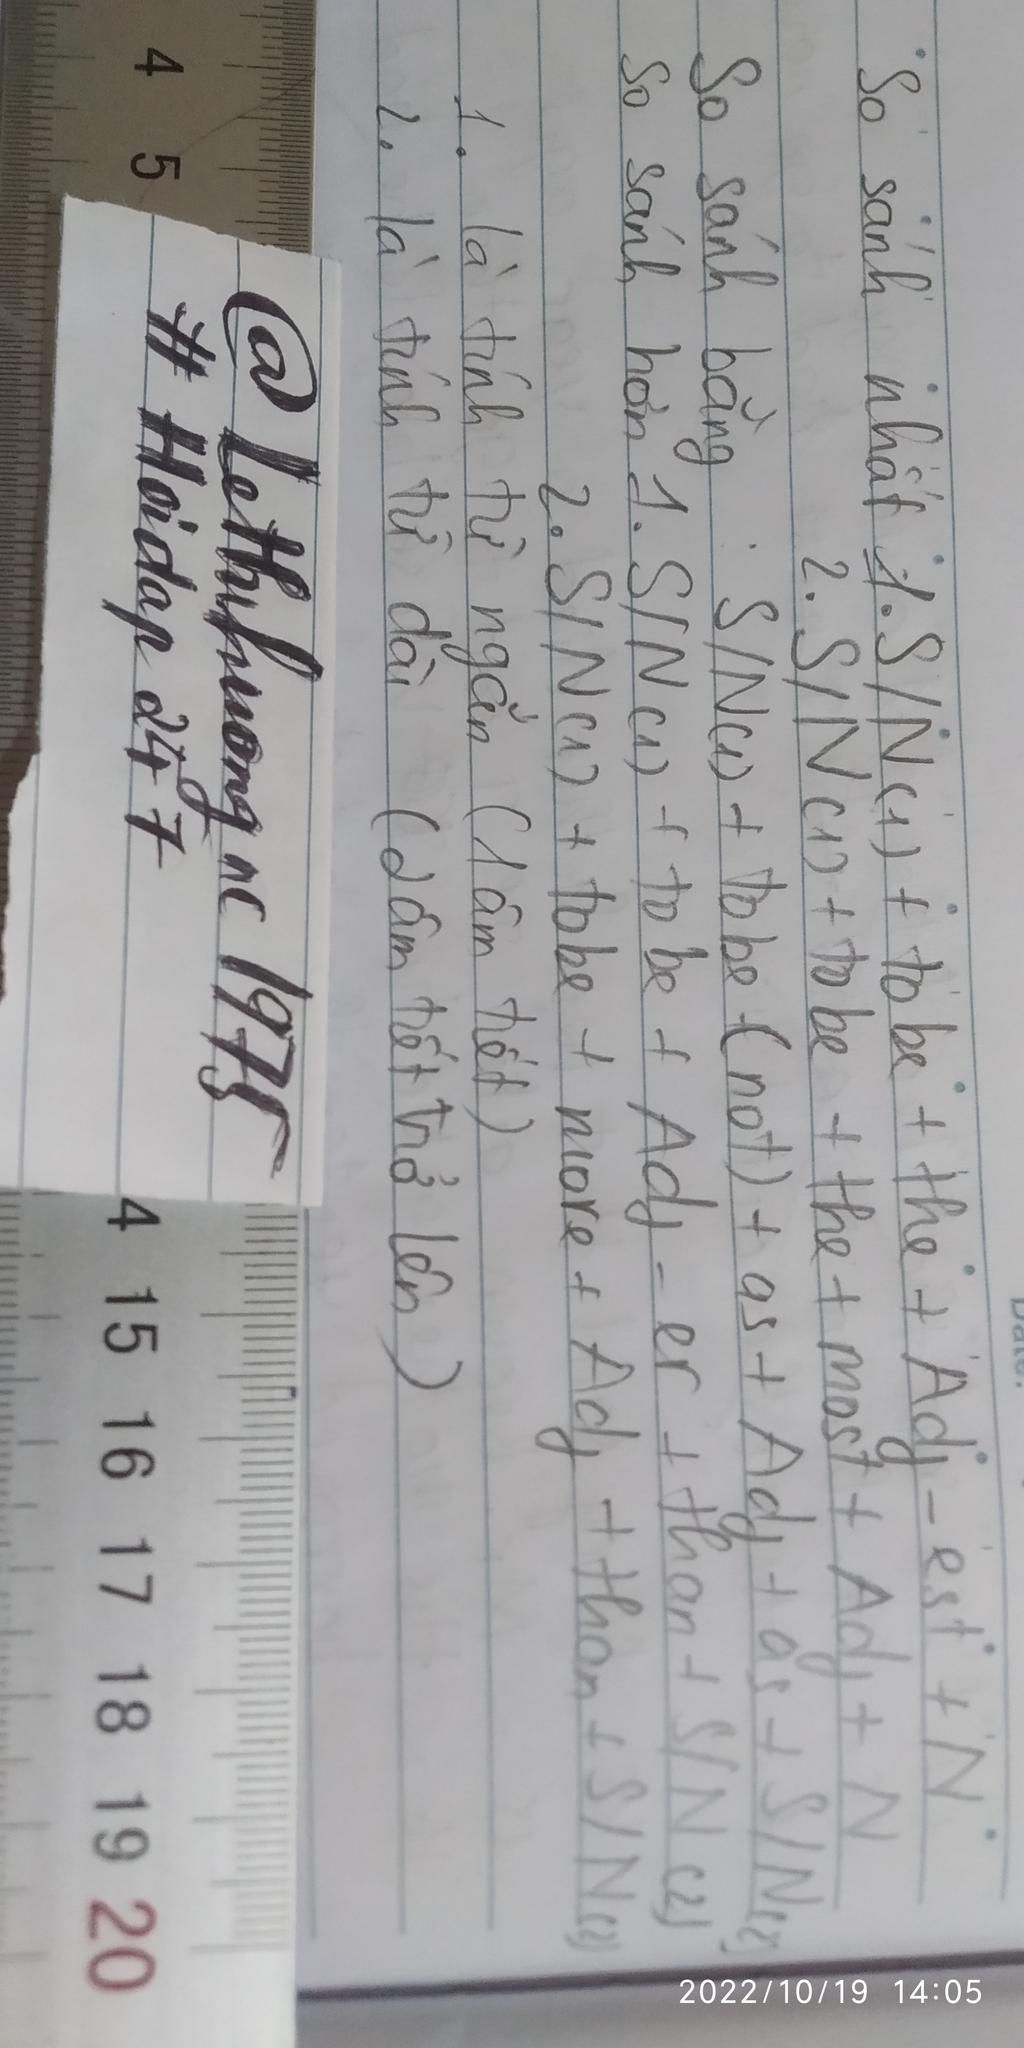 Date:
So sánh nhất 1. S/N(1) + to be + the + Adj - est + N
2. S/N(1) + to be + the + most + Adj + N
So sánh bằng : S/N(1) + to be + (not) + as + Adj + as + S/N(2)
So sánh hơn 1. S/N(1) + to be + Adj - er + than + S/N(2)
2. S/N(1) + to be + more + Adj + than + S/N(2)
1. là tính từ ngắn (1 âm tiết)
2. là tính từ dài (2 âm tiết trở lên)
@ lethihuongnc 1975
# Hoidap 247
4 5
4 15 16 17 18 19 20
2022/10/19 14:05